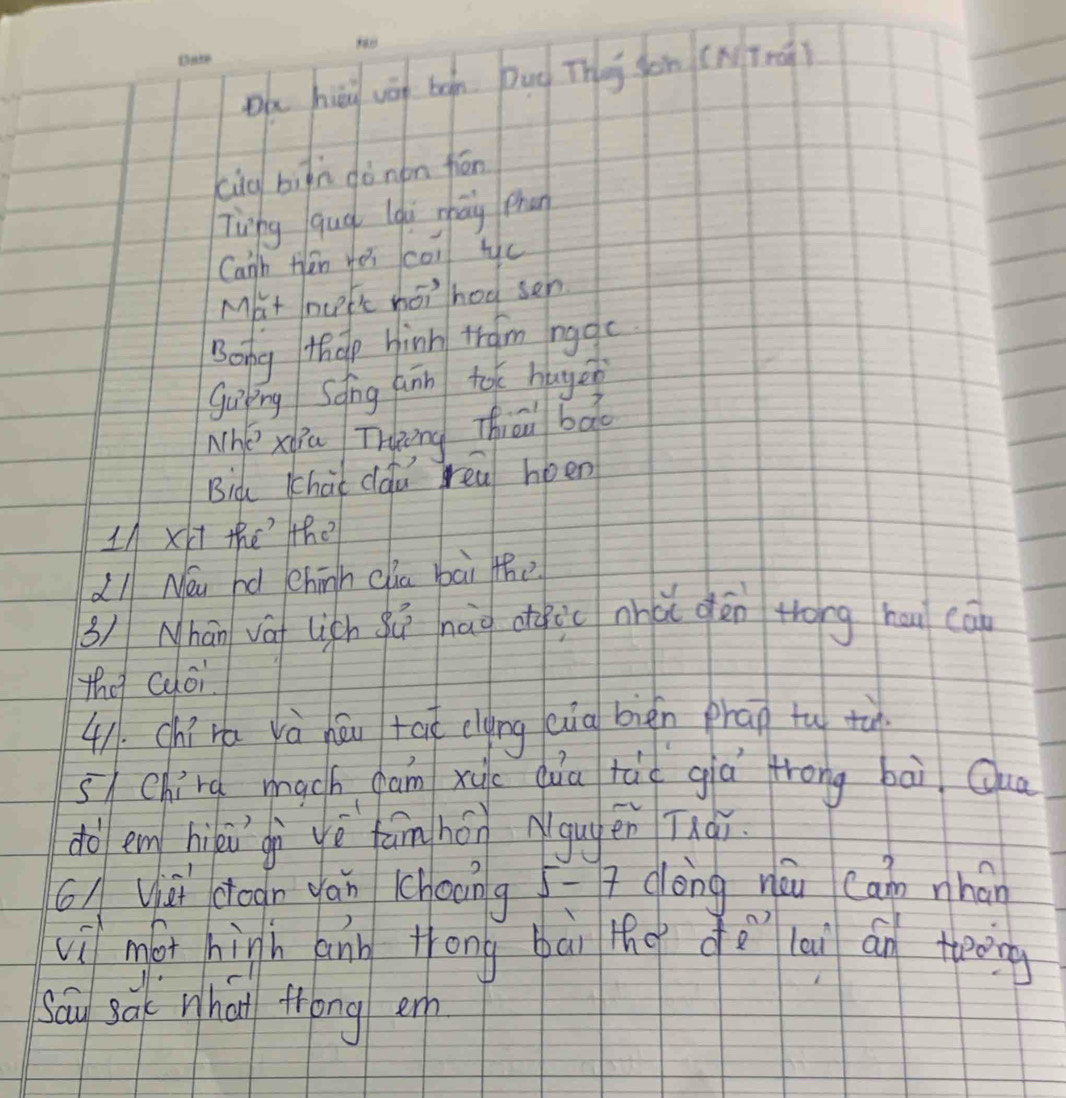 Date
No
Đọc hiểu văn bản Dục Thúy Sơn (N Trãi)
Cửa biển có non tiên
Từng qua lại mấy phen
Cảnh tiên rơi cõi tục
Mặt nước nổi hoa sen
Bóng tháp hình trâm ngọc
Gương sông ánh tóc huyền
Nhớ xưa Trương Thiếu bảo
Bia khắc dấu rêu hoen
1/ XĐ thể thơ
2/ Nêu nd chính của bài thơ.
3/ Nhân vật lịch sử nào được nhắc đến trong hai câu
thơ cuối.
4/. Chỉ ra và nêu tác dụng của biện pháp tu từ.
5/ Chỉ ra mạch cảm xúc của tác giả trong bài. Qua
đó em hiểu gì về tâm hồn Nguyễn Trãi.
6/ Viết đoạn văn khoảng 5-7 dòng nêu cảm nhận
về một hình ảnh trong bài thơ để lại ấn tượng
sâu sắc nhất trong em